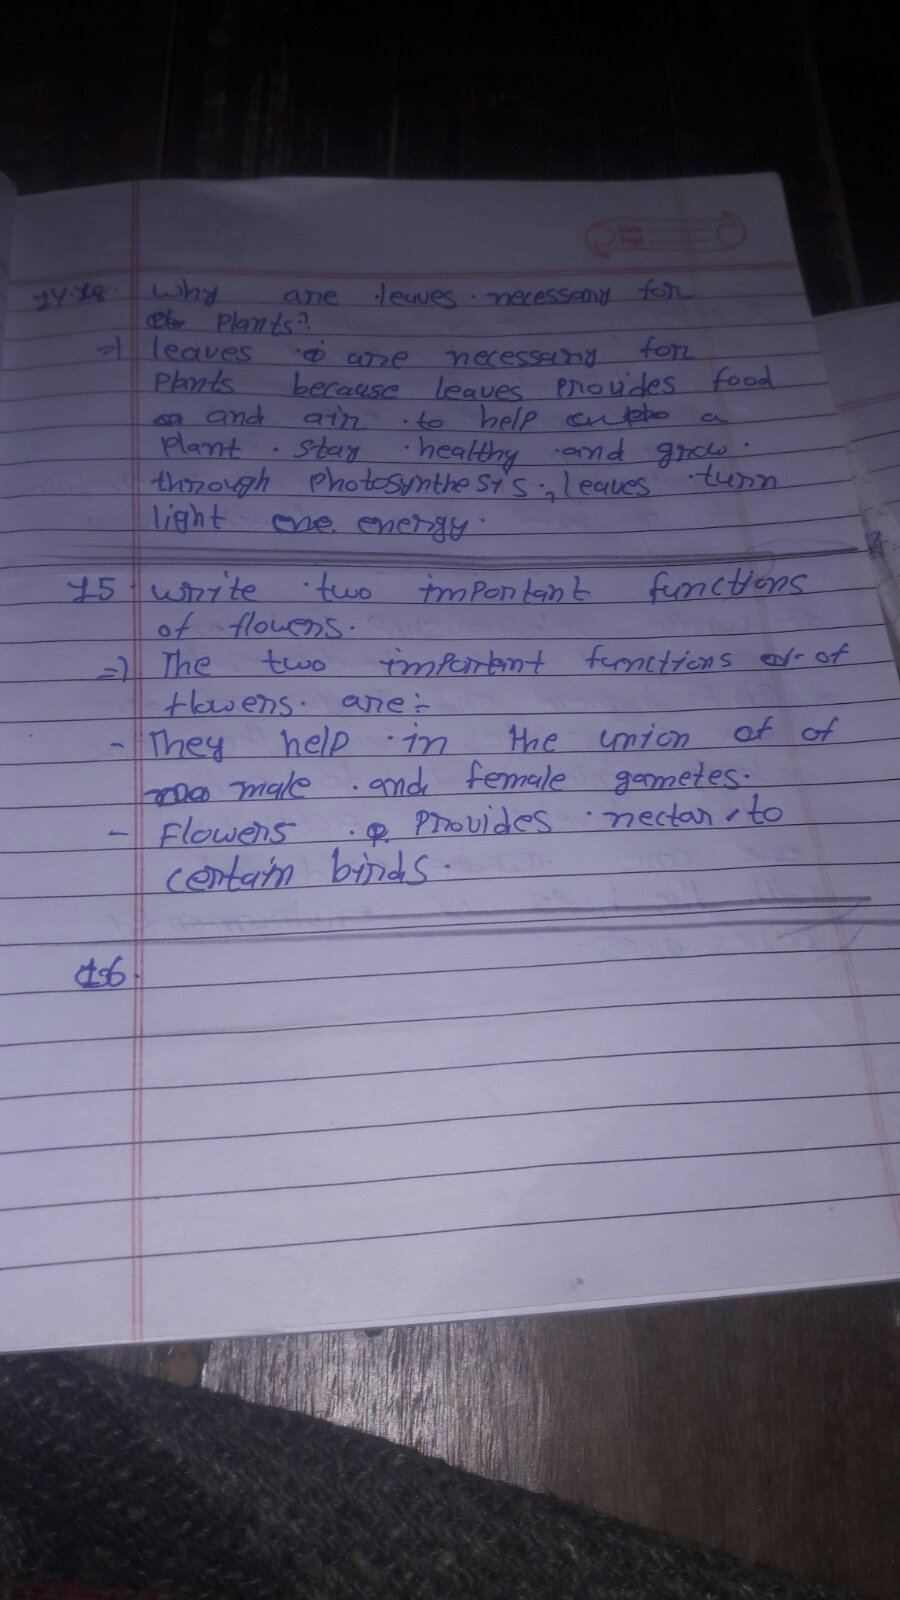 14.
Why are leaves necessary for
Plants?
=) leaves are necessary for
Plants because leaves provides food
and air to help a
Plant stay healthy and grow.
through Photosynthesis, leaves turn
light energy.
15 Write two important functions
of flowers.
=) The two important functions of
flowers are:-
- They help in the union of of
male and female gametes.
- Flowers Provides nectar to
certain birds.
16.
Date
Page